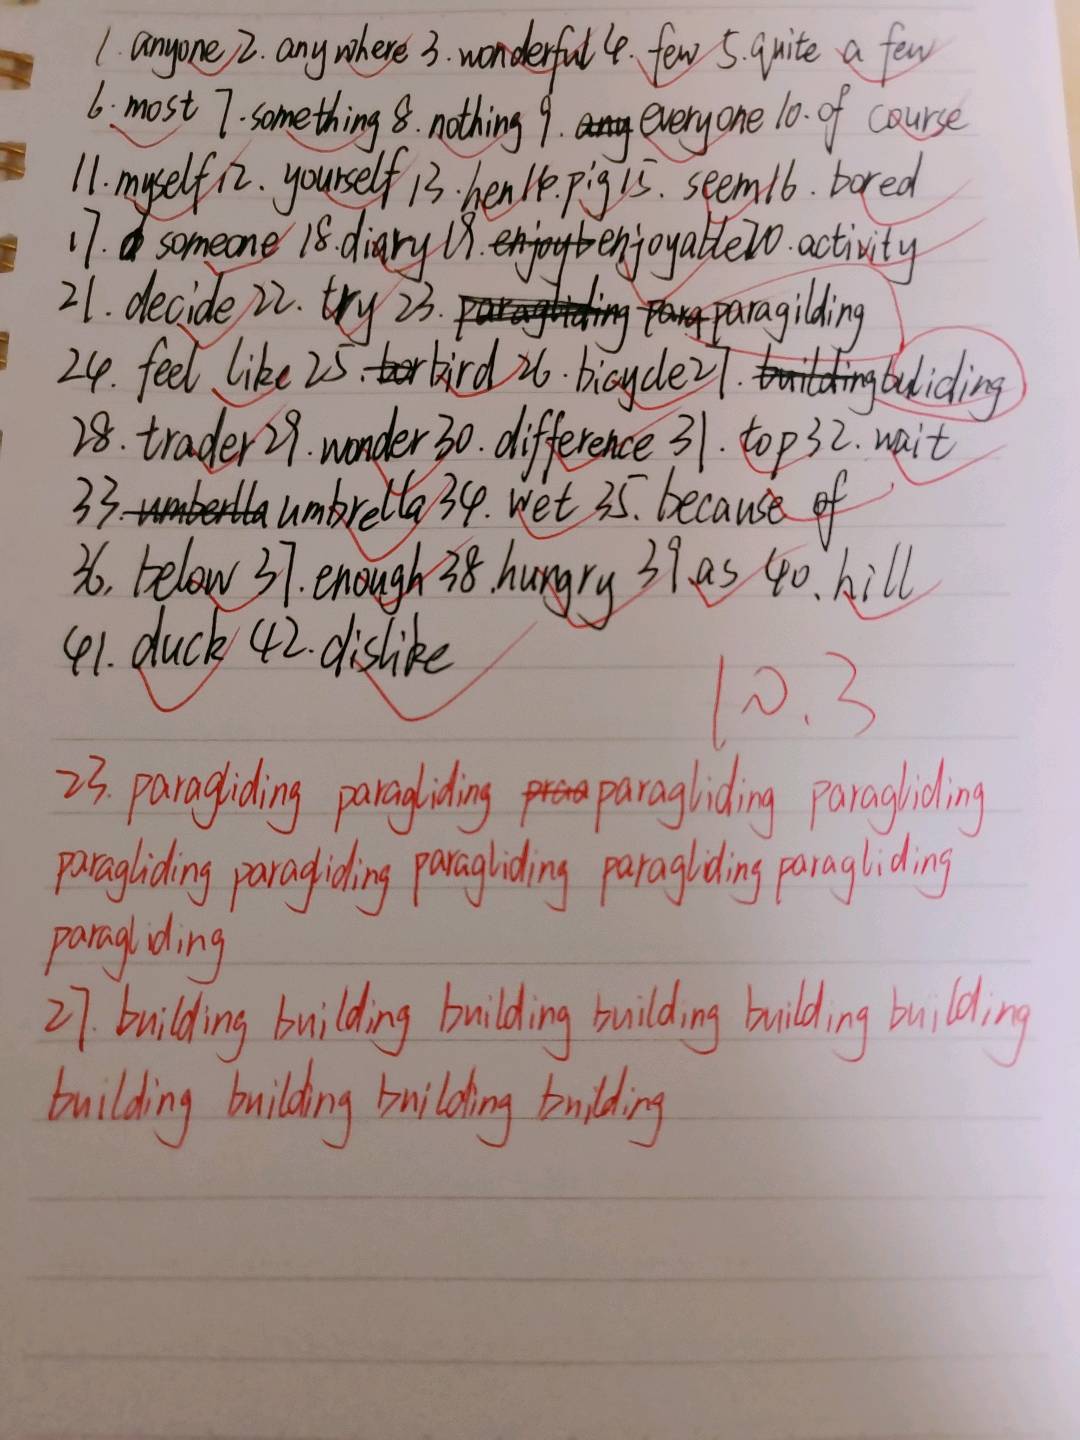 1. anyone 2. anywhere 3. wonderful 4. few 5. quite a few
6. most 7. something 8. nothing 9. any everyone 10. of course
11. myself 12. yourself 13. hen 14. pig 15. seem 16. bored
17. someone 18. diary 19. enjoyb enjoyable 20. activity
21. decide 22. try 23. paragliding para paragilding
24. feel like 25. bor bird 26. bicycle 27. building buliding
28. trader 29. wonder 30. difference 31. top 32. wait
33. umberlla umbrella 34. wet 35. because of
36. below 37. enough 38. hungry 39. as 40. hill
41. duck 42. dislike
10.3
23. paragliding paragliding praa paragliding paragliding
paragliding paragliding paragliding paragliding paragliding
paragliding
27. building building building building building building
building building building building